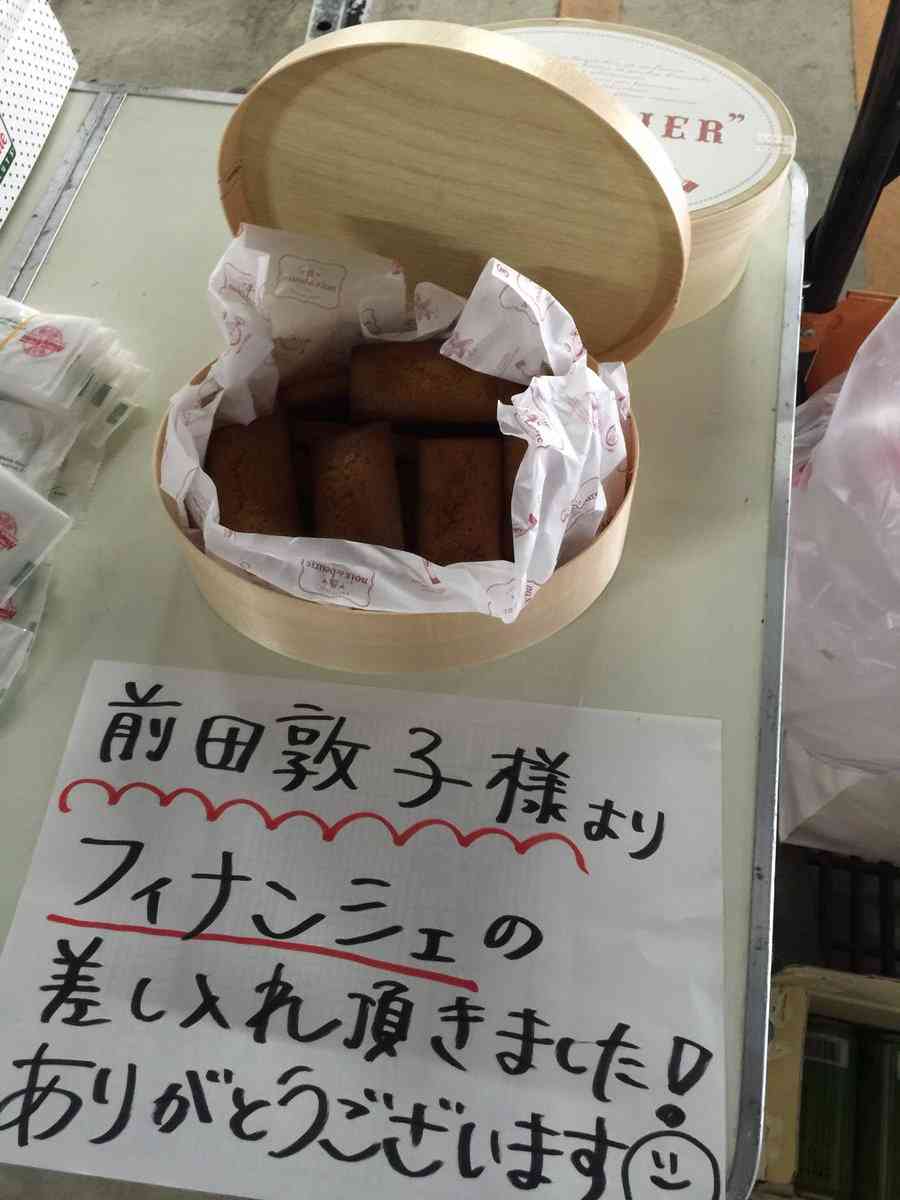 IER”
前田敦子様より
フィナンシェの
差し入れ頂きました!
ありがとうございます